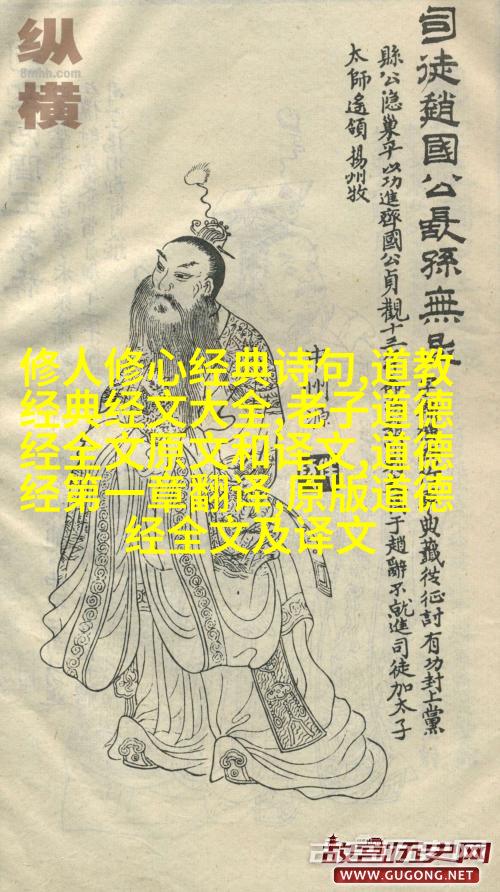 纵
8mhh.com
横
司徒趙國公長孫無忌
縣公隐巢平以功進齊國公貞觀十三
太師遙領揚州牧
典籖從征討有功封上黨
于趙辭不就進司徒加太子
修人修心经典诗句,道教
经典经文大全,老子道德
经全文原文和译文,道德
经第一章翻译,原版道德
经全文及译文
故宫历史网
www.GUGONG.NET